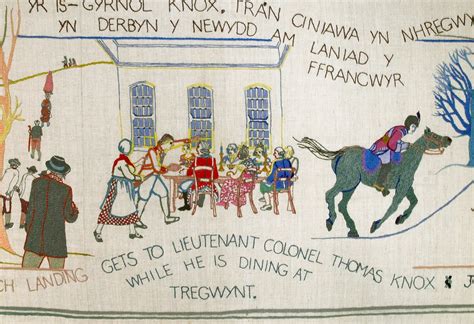 YR IS-GYRNOL KNOX, TRA'N CINIAWA YN NHREGW
YN DERBYN Y NEWYDD AM LANIAD Y
FFRANCWYR
CH LANDING
GETS TO LIEUTENANT COLONEL THOMAS KNOX & J
WHILE HE IS DINING AT
TREGWYNT.